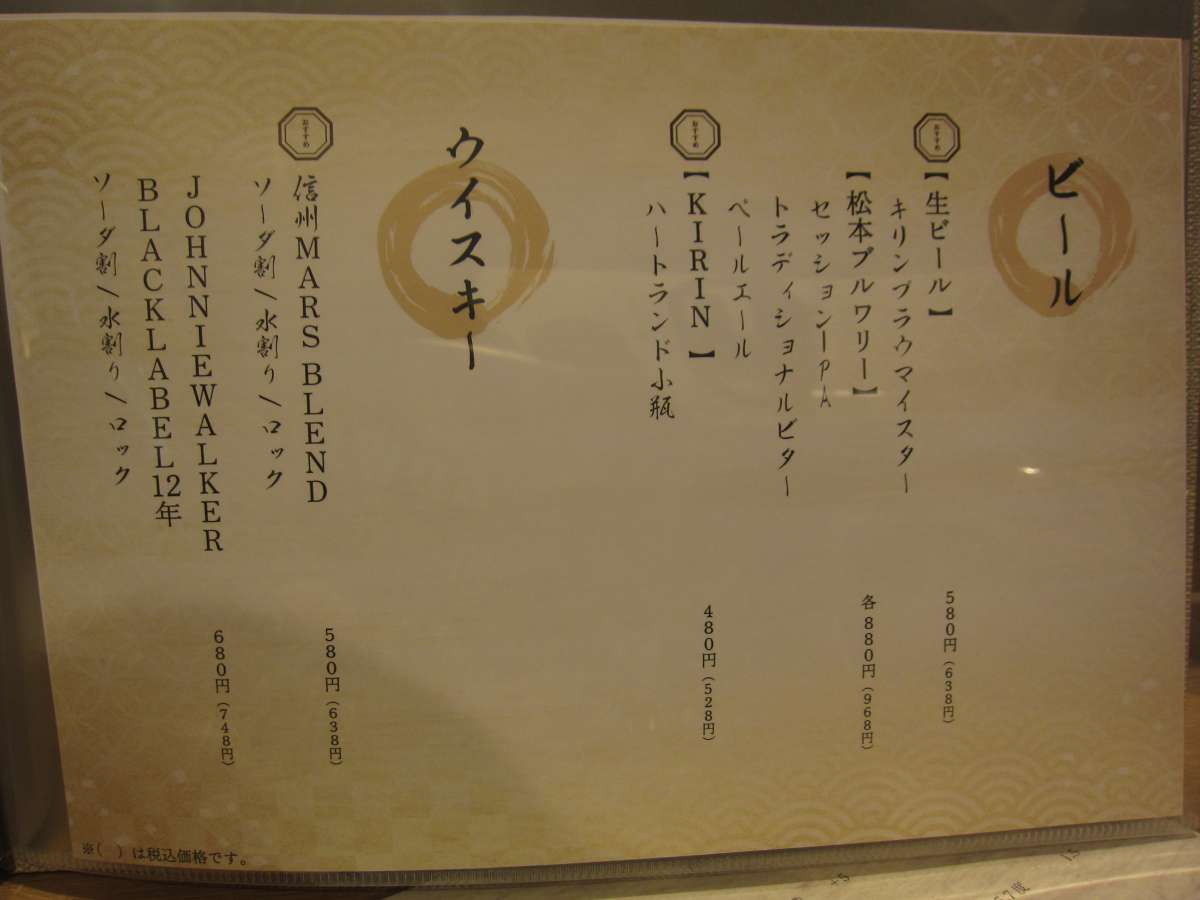 ビール
おすすめ
【生ビール】
580円（638円）
キリンブラウマイスター
【松本ブルワリー】
各880円（968円）
セッションIPA
トラディショナルビター
ペールエール
おすすめ
【KIRIN】
480円（528円）
ハートランド小瓶
ウイスキー
おすすめ
信州MARS BLEND
580円（638円）
ソーダ割/水割り/ロック
JOHNNIEWALKER
680円（748円）
BLACKLABEL12年
ソーダ割/水割り/ロック
※(　)は税込価格です。